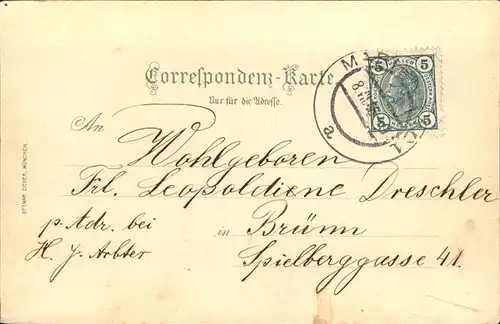 Correspondenz-Karte
Nur für die Adresse.
5 5
5 5
An
Wohlgeboren
Frl. Leopoldiene Dreschler
p. Adr. bei in Brünn
H. J. Arbter Spielberggasse 41.
OTTMAR ZIEHER, MÜNCHEN.